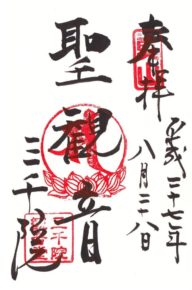 奉拝
平成二十七年
八月二十八日
聖観音
三千院